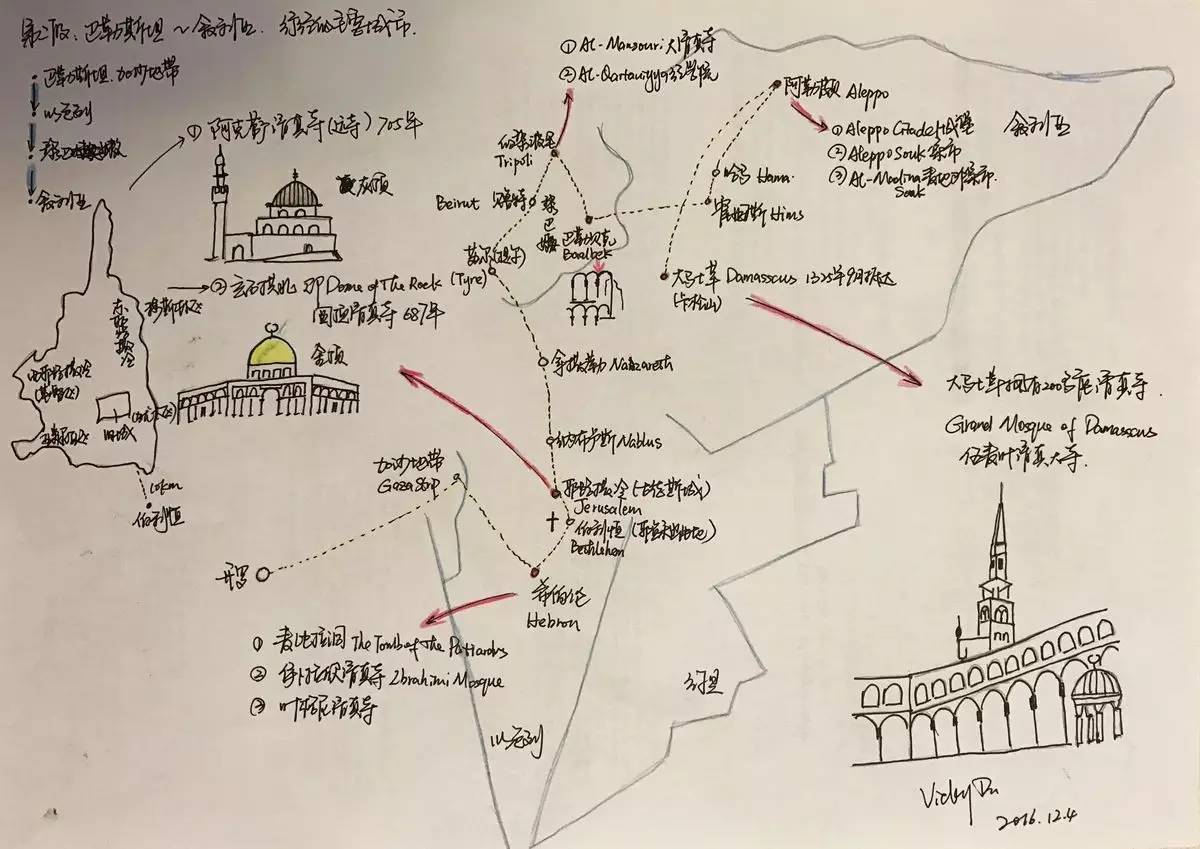 巴勒斯坦~叙利亚.行经的主要城市.
巴勒斯坦.加沙地带
以色列
叙利亚
① 阿克萨清真寺(远寺) 705年
灰顶
② 即Dome of The Rock
圆顶清真寺 687年
金顶
东耶路撒冷
穆斯林区
西耶路撒冷
(基督区)
旧城
10km
伯利恒
① Al-Mansouri大清真寺
② Al-Qartawiyya经学院
Tripoli
Beirut 贝鲁特
黎巴嫩
(Tyre)
巴勒贝克
Baalbek
阿勒颇 Aleppo
① Aleppo Citadel城堡
② Aleppo Souk 集市
③ Al-Madina 麦地那集市.
Souk
叙利亚
哈马 Hama.
霍姆斯 Hims
大马士革 Damascus 1325年9月抵达
大马士革拥有200多座清真寺.
Grand Mosque of Damascus
伍麦叶清真大寺.
拿撒勒 Nanzareth
纳布卢斯 Nablus
耶路撒冷
Jerusalem
伯利恒 (耶稣出生地)
Bethlehem
加沙地带
Gaza Strip
开罗
希伯伦
Hebron
① 麦比拉洞 The Tomb of The Patriarchs
② 伊卜拉欣清真寺 Ibrahimi Mosque
③ 清真寺
以色列
约旦
2016.12.4